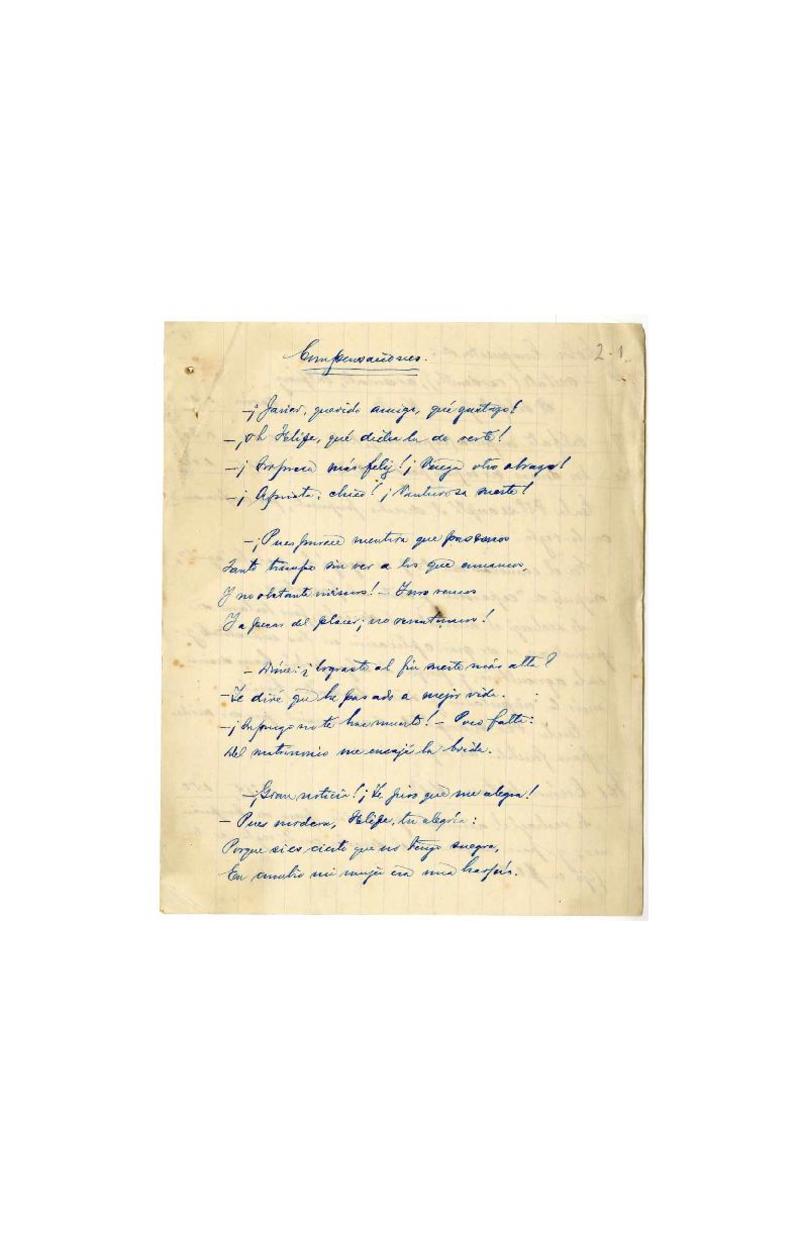 Compensaciones.
2-1
—¡Javier, querido amigo, qué gustazo!
—¡Oh Felipe, qué dicha la de verte!
—¡Sorpresa más feliz! ¡Venga otro abrazo!
—¡Aprieta, chico! ¡Venturosa suerte!
—¡Pues parece mentira que pasemos
Tanto tiempo sin ver a los que amamos,
Y no obstante vivimos! —
Y a pesar del placer, ¡no reventamos!
—Dime: ¿lograste al fin suerte más alta?
—Te diré que he pasado a mejor vida.
—¡Supongo no te has muerto! —Poco falta:
Del matrimonio me encajé la brida.
—¡Gran noticia! ¡Te juro que me alegra!
—Pues modera, Felipe, tu alegría:
Porque si es cierto que no tengo suegra,
En cambio mi mujer era una harpía.